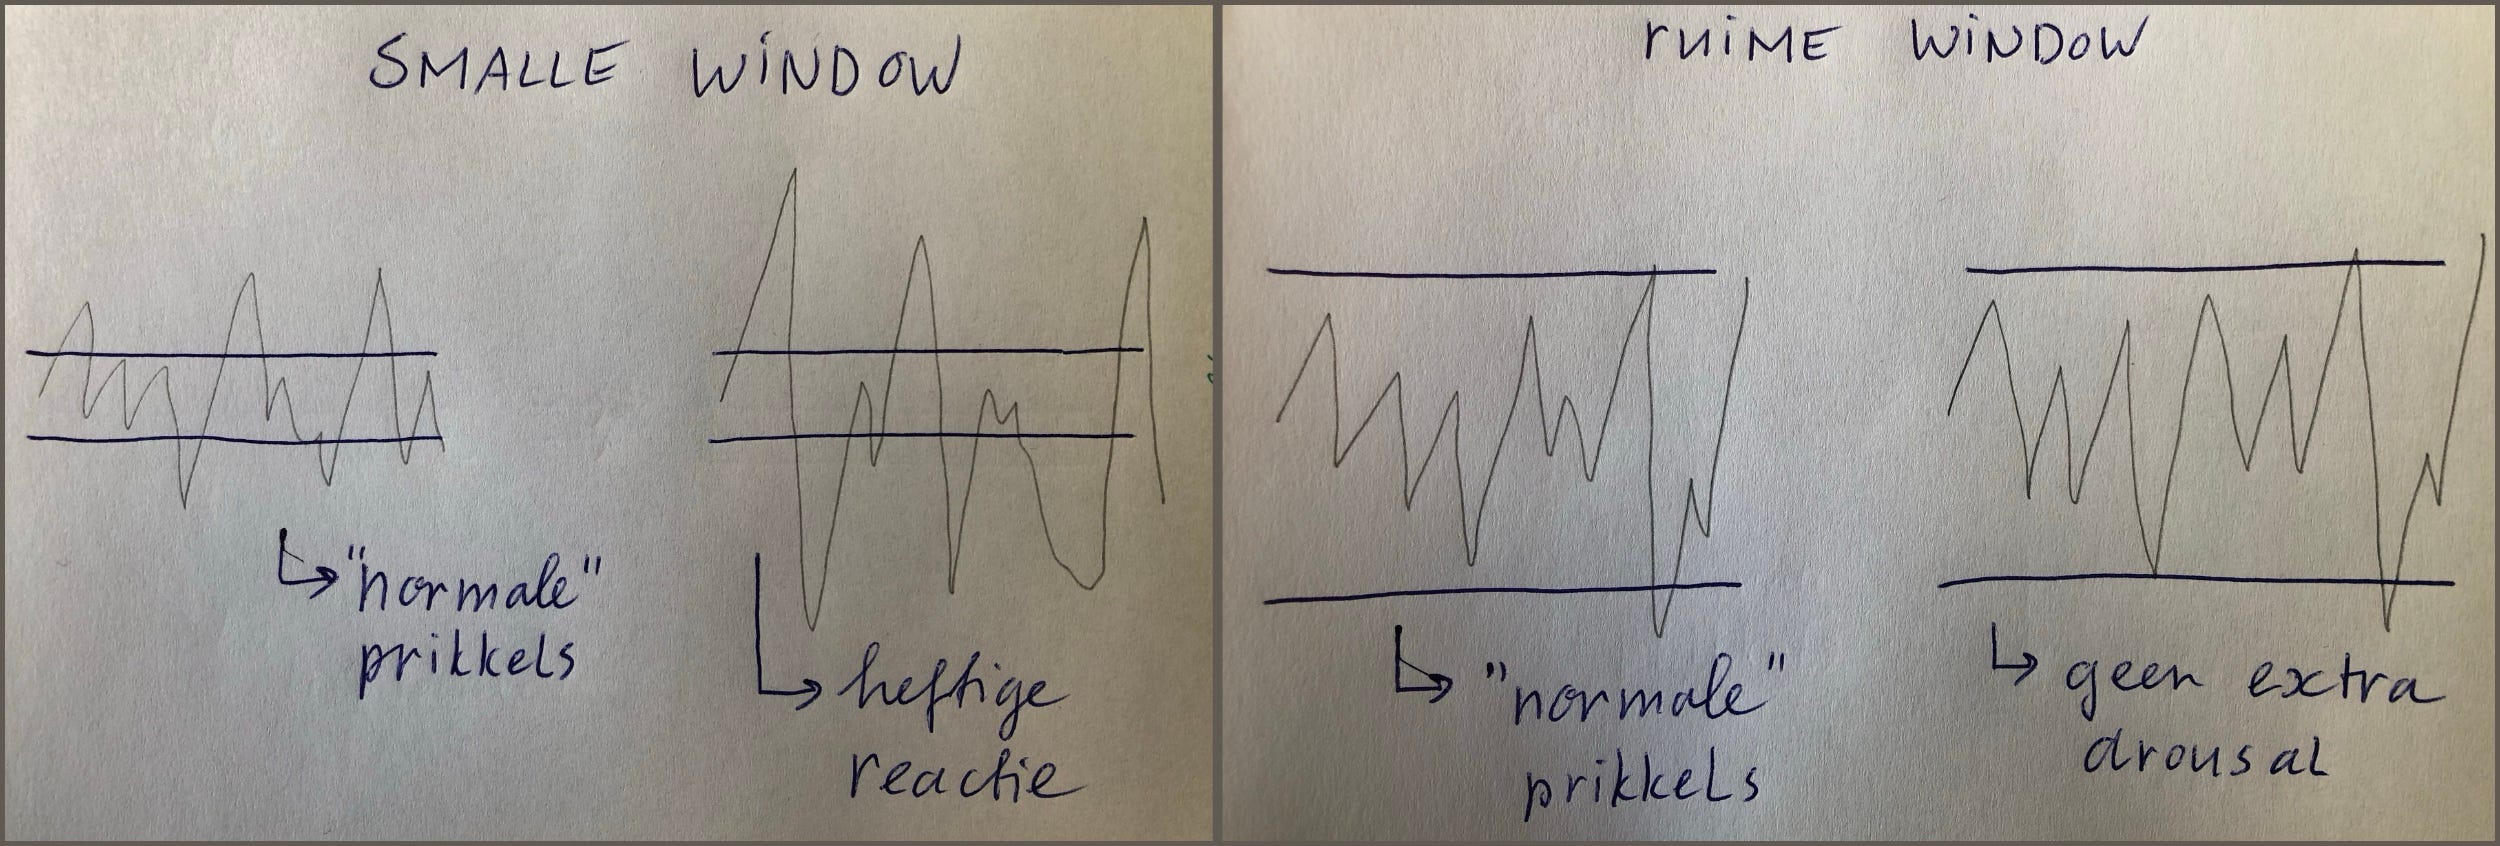 SMALLE WiNDOW
"normale"
prikkels
heftige
reactie
ruiME WiNDOW
"normale"
prikkels
geen extra
arousal